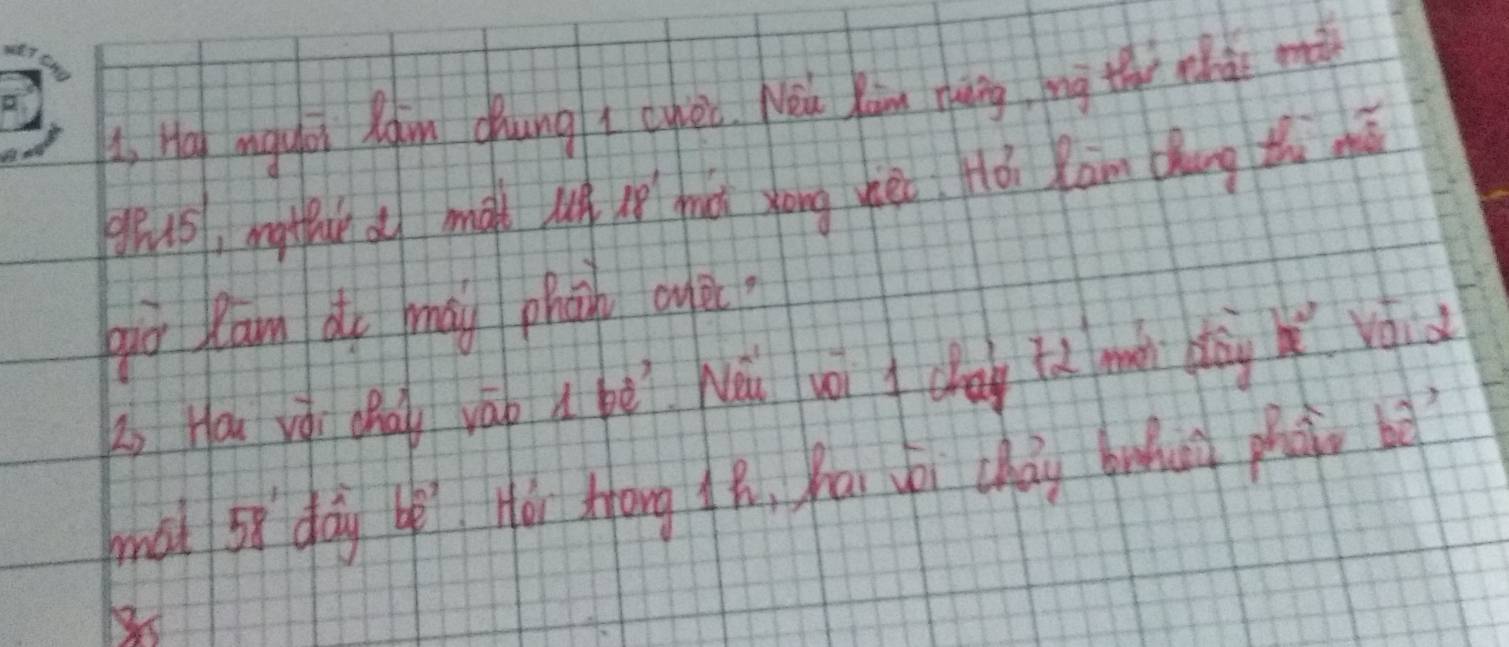 1, Hai người làm chung 1 cviệc. Nếu làm riêng, ng thứ nhất mất
9h15', ngthứ 2 mất 11h 18' mới xong việc. Hỏi làm chung thì mỗi
giờ làm đc mấy phần cviệc?
2, Hai vòi chảy vào 1 bể. Nếu vòi 1 chảy 72' mới đầy bể. Vòi 2
mất 58' đầy bể. Hỏi trong 1h, hai vòi chảy bnhiêu phần bể